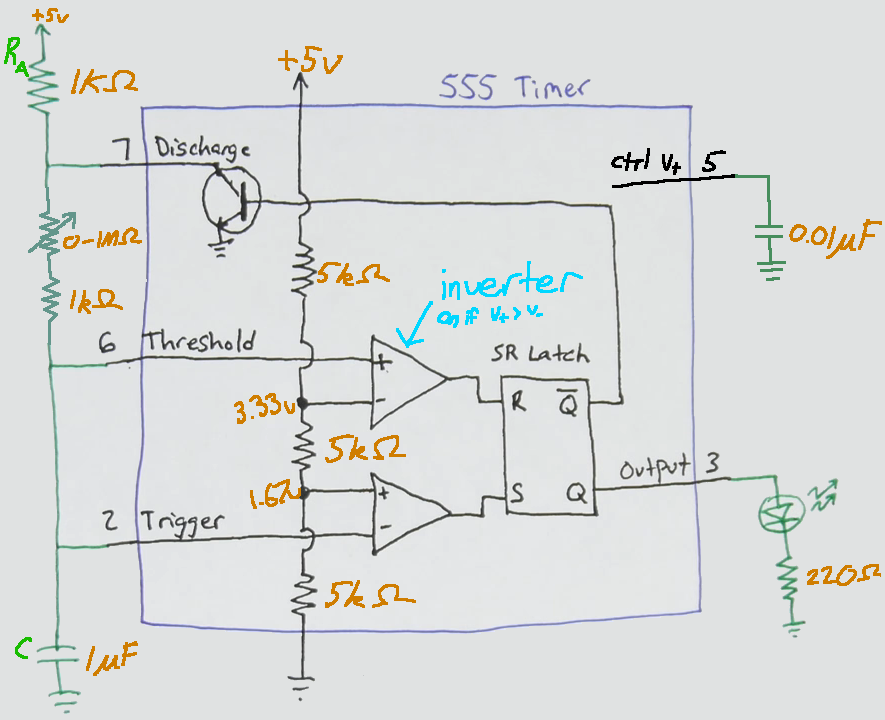 +5v
R_A
1KΩ
+5v
555 Timer
7
Discharge
ctrl V+ 5
0-1MΩ
0.01μF
5kΩ
1kΩ
inverter
on if V+ > V-
6
Threshold
+
-
SR Latch
3.33v
R
Q̅
5kΩ
1.67v
+
-
S
Q
Output 3
2
Trigger
5kΩ
220Ω
C
1μF